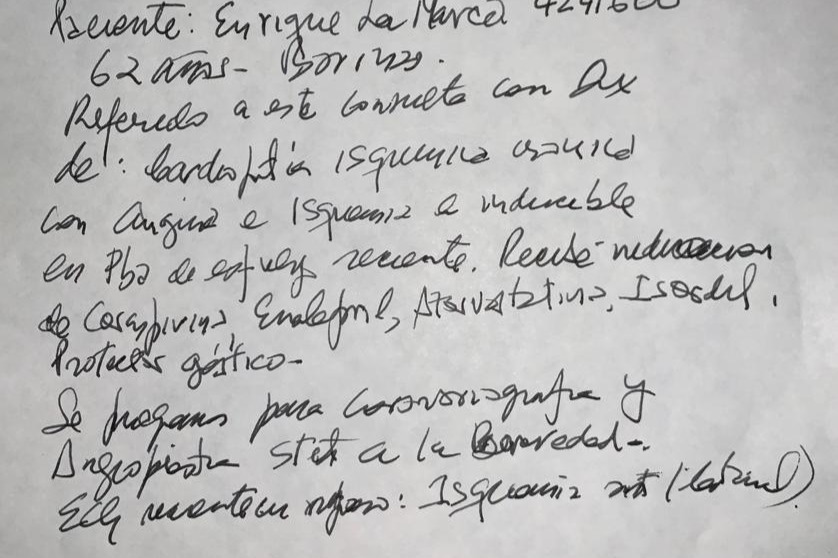 Paciente: Enrique La Marca
62 años - Barinas.
Referido a este consulta con Dx
de: Cardiopatía isquemica cronica
con angina e Isquemia e inducible
en Pba de esfuerzo reciente. Recibe
de Coraspirina, Enalapril, Atorvastatina, Isosdil.
Protector gástrico-
Se programa para Coronariografia y
Angioplastia Stent a la Brevedad-.
ECG reciente en reposo: Isquemia ant (lateral)